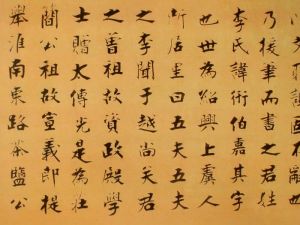 乃援筆而書之君姓
李氏諱術伯嘉其字
也世為紹興上虞人
所居里曰五夫五夫
之李聞于越尚矣君
之曾祖故資政殿學
士贈太傅光是為莊
簡公祖故宣義郎提
舉淮南東路茶鹽公